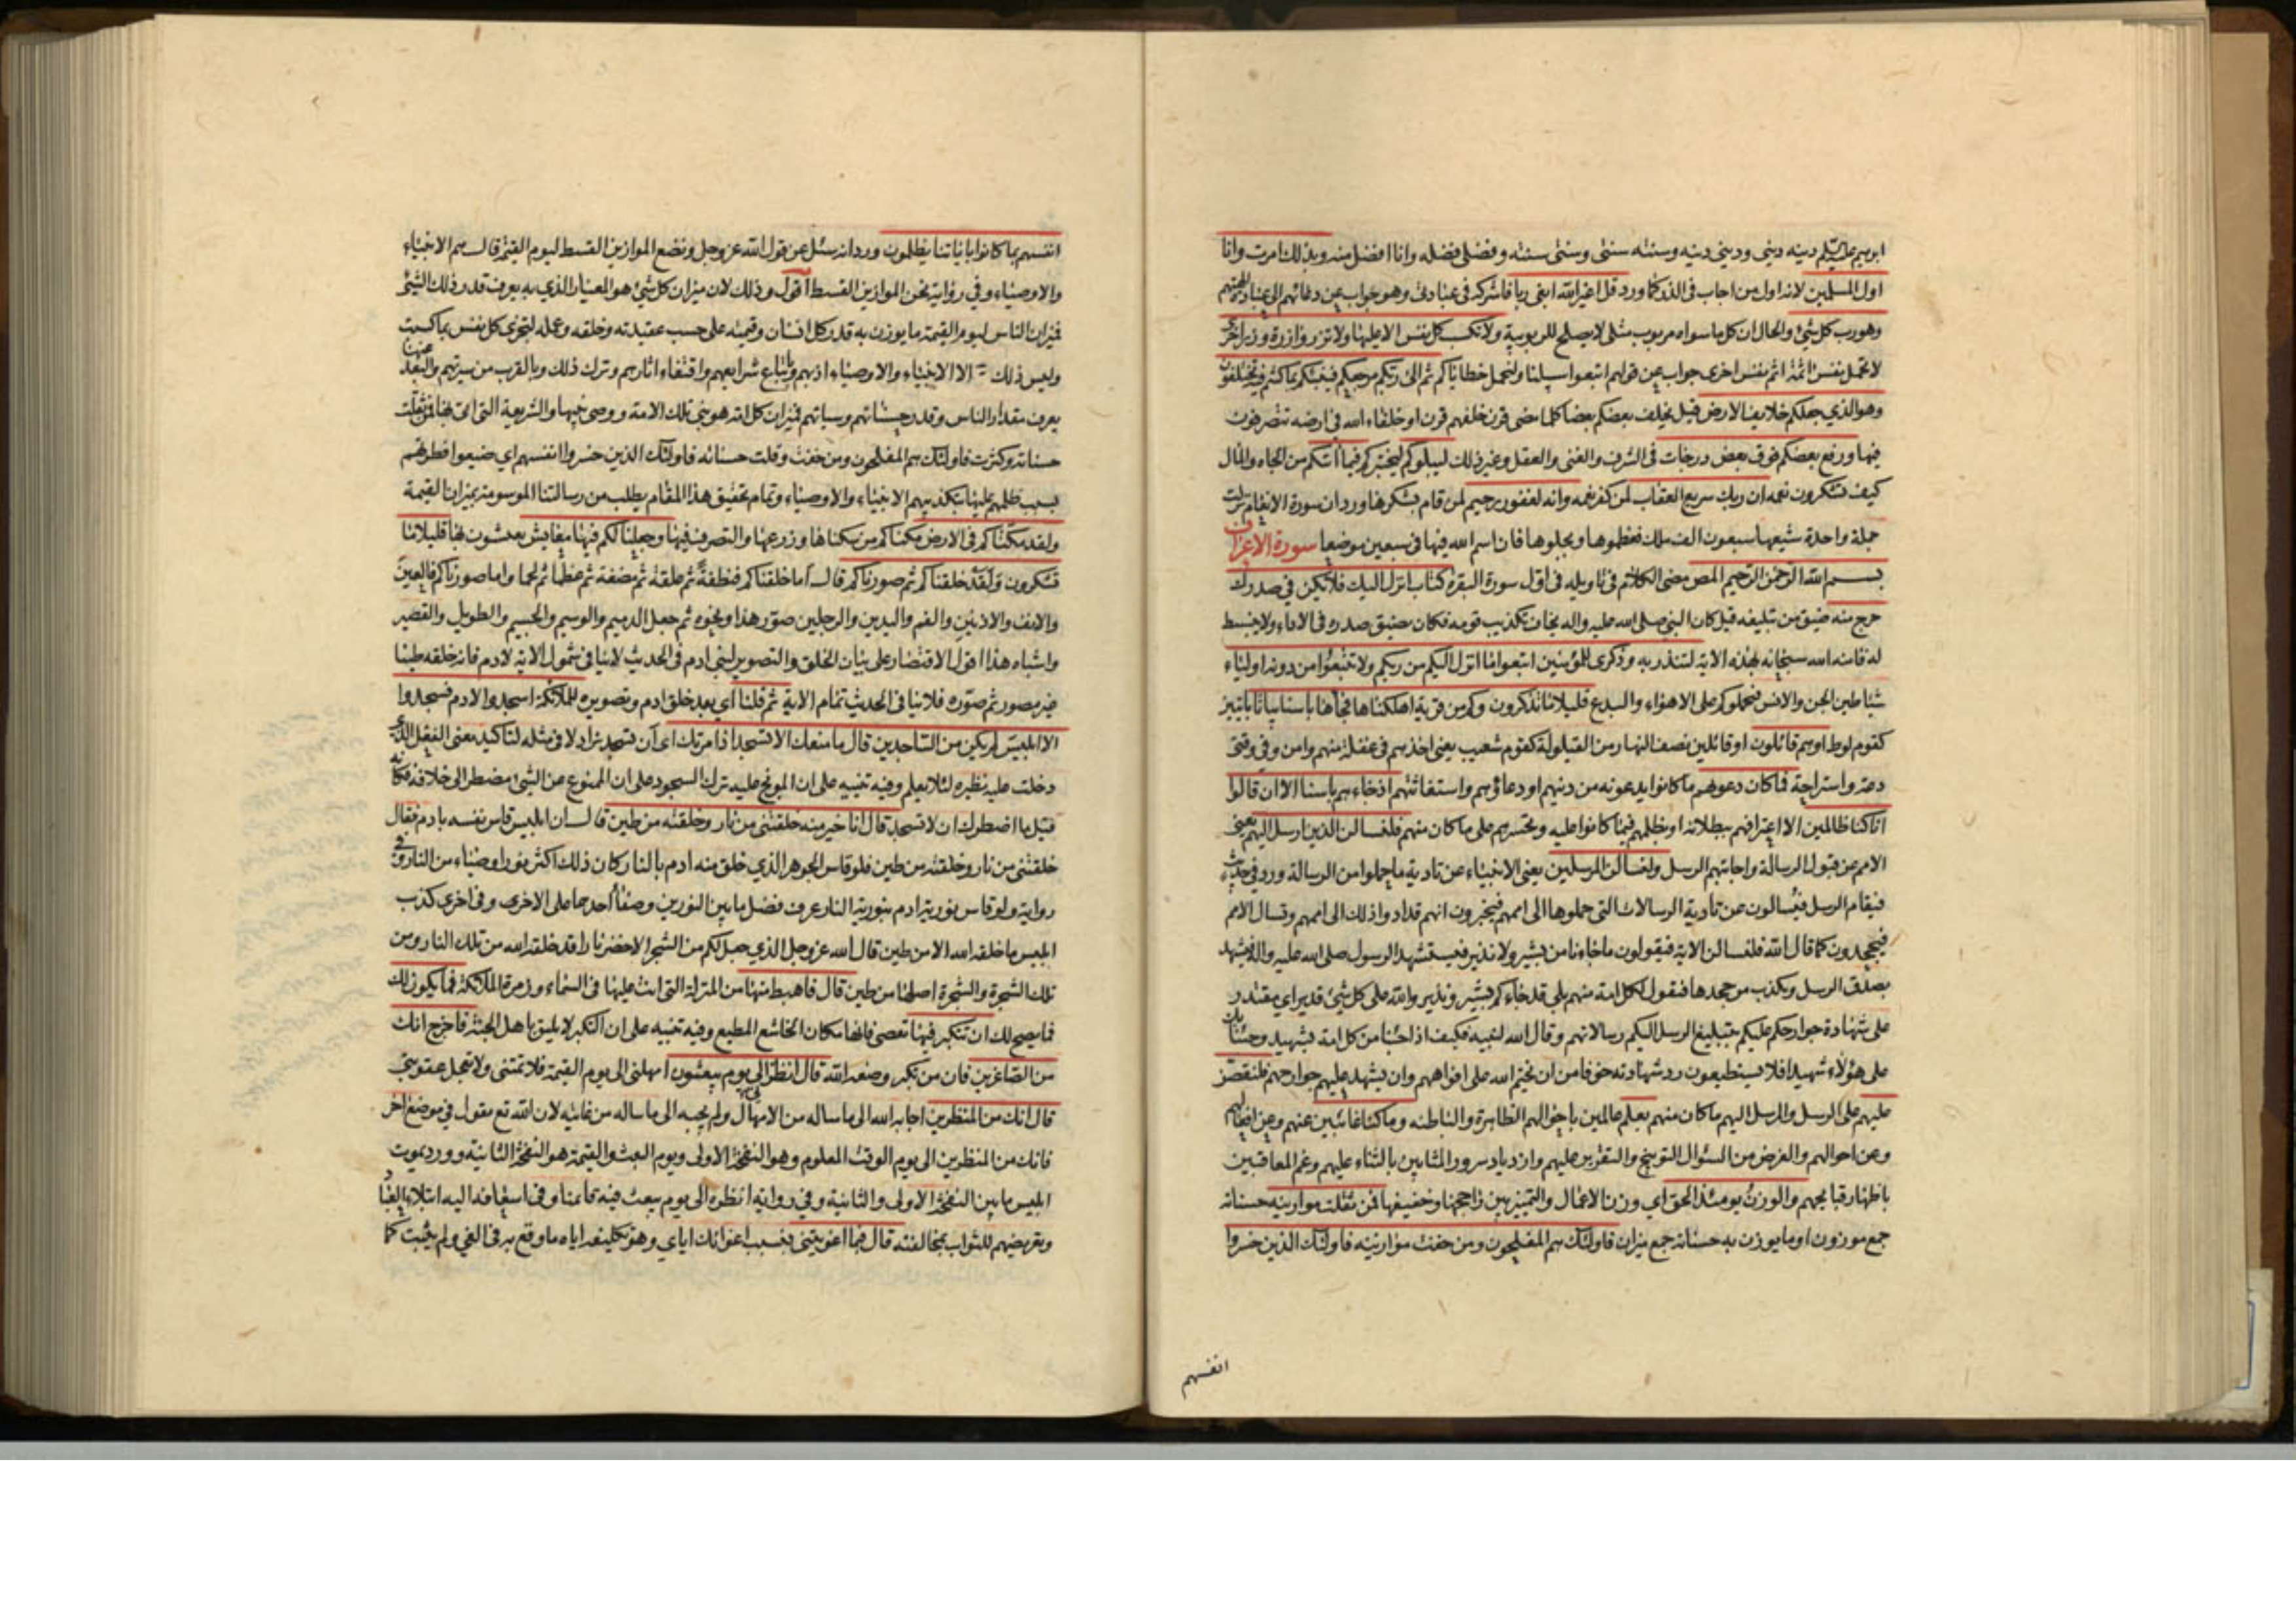 ابرهيم عليه السلم دينه ديني وديني دينه وسنته سنتي وسنتي سنته وفضلي فضله وانا افضل منه وبذلك امرت وانا
اول المسلمين لانه اول من اجاب في الذر كما ورد قل اغير الله ابغي ربا فاشركه في عبادتي وهو جواب عن دعائهم الى عبادة الهتهم
وهو رب كل شئ والحال ان كل ما سواه مربوب مثلي لا يصلح للربوبية ولا تكسب كل نفس الا عليها ولا تزر وازرة وزر اخرى
لا تحمل نفس اثمة اثم نفس اخرى جواب عن قولهم اتبعوا سبيلنا ولنحمل خطاياكم ثم الى ربكم مرجعكم فينبئكم بما كنتم فيه تختلفون
وهو الذي جعلكم خلايف الارض قيل يخلف بعضكم بعضا كلما مضى قرن خلفهم قرن او خلفاء الله في ارضه تتصرفون
فيها ورفع بعضكم فوق بعض درجات في الشرف والغنى والعقل وغير ذلك ليبلوكم ليختبركم فيما اتيكم من الجاه والمال
كيف تشكرون نعمه ان ربك سريع العقاب لمن كفر نعمه وانه لغفور رحيم لمن قام بشكرها ورد ان سورة الانعام نزلت
جملة واحدة شيعها سبعون الف ملك فعظموها وبجلوها فان اسم الله فيها في سبعين موضعا سورة الاعراف
بسم الله الرحمن الرحيم المص مضى الكلام في تاويله في اول سورة البقرة كتاب انزل اليك فلا يكن في صدرك
حرج منه ضيق من تبليغه قيل كان النبي صلى الله عليه واله يخاف تكذيب قومه فكان يضيق صدره في الاداء ولا ينبسط
له فامنه الله سبحانه بهذه الاية لتنذر به وذكرى للمؤمنين اتبعوا ما انزل اليكم من ربكم ولا تتبعوا من دونه اولياء
شياطين الجن والانس فيحملوكم على الاهواء والبدع قليلا ما تذكرون وكم من قرية اهلكناها فجاءها باسنا بياتا بايتين
كقوم لوط او هم قائلون او قائلين نصف النهار من القيلولة كقوم شعيب يعني اخذهم في غفلة منهم وامن وفي وقتي
دعة واستراحة فما كان دعويهم ما كانوا يدعونه من دينهم او دعاؤهم واستغاثتهم اذ جاءهم باسنا الا ان قالوا
انا كنا ظالمين الا اعترافهم ببطلانه او بظلمهم فيما كانوا عليه وتحسرهم على ما كان منهم فلنسالن الذين ارسل اليهم يعني
الامم عن قبول الرسالة واجابتهم الرسل ولنسالن المرسلين يعني الانبياء عن تادية ما حملوا من الرسالة ورد في حديث
فيقام الرسل فيسالون عن تادية الرسالات التي حملوها الى اممهم فيخبرون انهم قد ادوا ذلك الى اممهم وتسال الامم
فيجحدون كما قال الله فلنسالن الاية فيقولون ما جاءنا من بشير ولا نذير فيستشهد الرسول صلى الله عليه واله فيشهد
بصدق الرسل ويكذب من جحدها فيقول لكل امة منهم بلى قد جاءكم بشير ونذير والله على كل شئ قدير اي مقتدر
على شهادة جوارحكم عليكم بتبليغ الرسل اليكم رسالاتهم وقال الله لنبيه فكيف اذا جئنا من كل امة بشهيد وجئنا بك
على هؤلاء شهيدا فلا يستطيعون رد شهادته خوفا من ان يختم الله على افواههم وان يشهد عليهم جوارحهم فلنقصن
عليهم على الرسل والمرسل اليهم ما كان منهم بعلم عالمين باحوالهم الظاهرة والباطنة وما كنا غائبين عنهم وعن افعالهم
وعن احوالهم والغرض من السؤال التوبيخ والتقرير عليهم وازدياد سرور المثابين بالثناء عليهم وغم المعاقبين
باظهار قبايحهم والوزن يومئذ الحق اي وزن الاعمال والتمييز بين راجحها وخفيفها فمن ثقلت موازينه حسناته
جمع موزون او ما يوزن به حسناته جمع ميزان فاولئك هم المفلحون ومن خفت موازينه فاولئك الذين خسروا
انفسهم
انفسهم بما كانوا باياتنا يظلمون ورد انه سئل عن قول الله عز وجل ونضع الموازين القسط ليوم القيمة قال هم الانبياء
والاوصياء وفي رواية نحن الموازين القسط اقول وذلك لان ميزان كل شئ هو المعيار الذي به يعرف قدر ذلك الشئ
فميزان الناس ليوم القيمة ما يوزن به قدر كل انسان وقيمته على حسب عقيدته وخلقه وعمله لتجزى كل نفس بما كسبت
وليس ذلك الا الانبياء والاوصياء اذ بهم وباتباع شرايعهم واقتفاء اثارهم وترك ذلك وبالقرب من سيرتهم والبعد عنها
يعرف مقدار الناس وقدر حسناتهم وسياتهم فميزان كل امة هو نبي تلك الامة ووصي نبيها والشريعة التي اتى بها فمن ثقلت
حسناته وكثرت فاولئك هم المفلحون ومن خفت وقلت حسناته فاولئك الذين خسروا انفسهم اي ضيعوا فطرتهم
بسبب ظلمهم علينا بتكذيبهم الانبياء والاوصياء وتمام تحقيق هذا المقام يطلب من رسالتنا الموسومة بميزان القيمة
ولقد مكناكم في الارض مكناكم من سكناها وزرعها والتصرف فيها وجعلنا لكم فيها معايش يعيشون بها قليلا ما
تشكرون ولقد خلقناكم ثم صورناكم قال اما خلقناكم فنطفة ثم علقة ثم مضغة ثم عظما ثم لحما واما صورناكم فالعين
والانف والاذنين والفم واليدين والرجلين صور هذا ونحوه ثم جعل الدميم والوسيم والجسيم والطويل والقصير
واشباه هذا اقول الاقتصار على بيان الخلق والتصوير لبني ادم في الحديث لا ينافي شمول الاية لادم فانه خلقه طينا
غير مصور ثم صوره فلا ينافي الحديث تمام الاية ثم قلنا اي بعد خلق ادم وتصويره للملائكة اسجدوا لادم فسجدوا
الا ابليس لم يكن من الساجدين قال ما منعك الا تسجد اذ امرتك اي ان تسجد يزاد لا في مثله لتاكيد معنى الفعل الذي
دخلت عليه نظيره لئلا يعلم وفيه تنبيه على ان الموبخ عليه ترك السجود على ان الممنوع عن الشئ مضطر الى خلافه فكانه
قيل ما اضطرك ان لا تسجد قال انا خير منه خلقتني من نار وخلقته من طين قال ان ابليس قاس نفسه بادم فقال
خلقتني من نار وخلقته من طين فلو قاس الجوهر الذي خلق منه ادم بالنار كان ذلك اكثر نورا وضياء من النار وفي
رواية ولو قاس نورية ادم بنورية النار عرف فضل ما بين النورين وصفاء احدهما على الاخرى وفي اخرى كذب
ابليس ما خلقه الله الا من طين قال الله عز وجل الذي جعل لكم من الشجر الاخضر نارا قد خلقه الله من تلك النار ومن
تلك الشجرة والشجرة اصلها من طين قال فاهبط منها من المنزلة التي انت عليها في السماء وزمرة الملائكة فما يكون لك
فما يصح لك ان تتكبر فيها تعصي فانها مكان الخاشع المطيع وفيه تنبيه على ان التكبر لا يليق باهل الجنة فاخرج انك
من الصاغرين فان من تكبر وضعه الله قال انظرني الى يوم يبعثون امهلني الى يوم القيمة فلا تمتني ولا تعجل عقوبتي
قال انك من المنظرين اجابه الله الى ما ساله من الامهال ولم يجبه الى ما ساله من غايته لان الله تع يقول في موضع اخر
فانك من المنظرين الى يوم الوقت المعلوم وهو النفخة الاولى ويوم البعث والقيمة هو النفخة الثانية وورد يموت
ابليس ما بين النفخة الاولى والثانية وفي رواية انظره الى يوم يبعث فيه قائمنا وفي اسعافه اليه ابتلاء العباد
وتعريضهم للثواب بمخالفته قال فبما اغويتني فبسبب اغوائك اياي وهو تكليفه اياه ما وقع به في الغي ولم يثبت كما